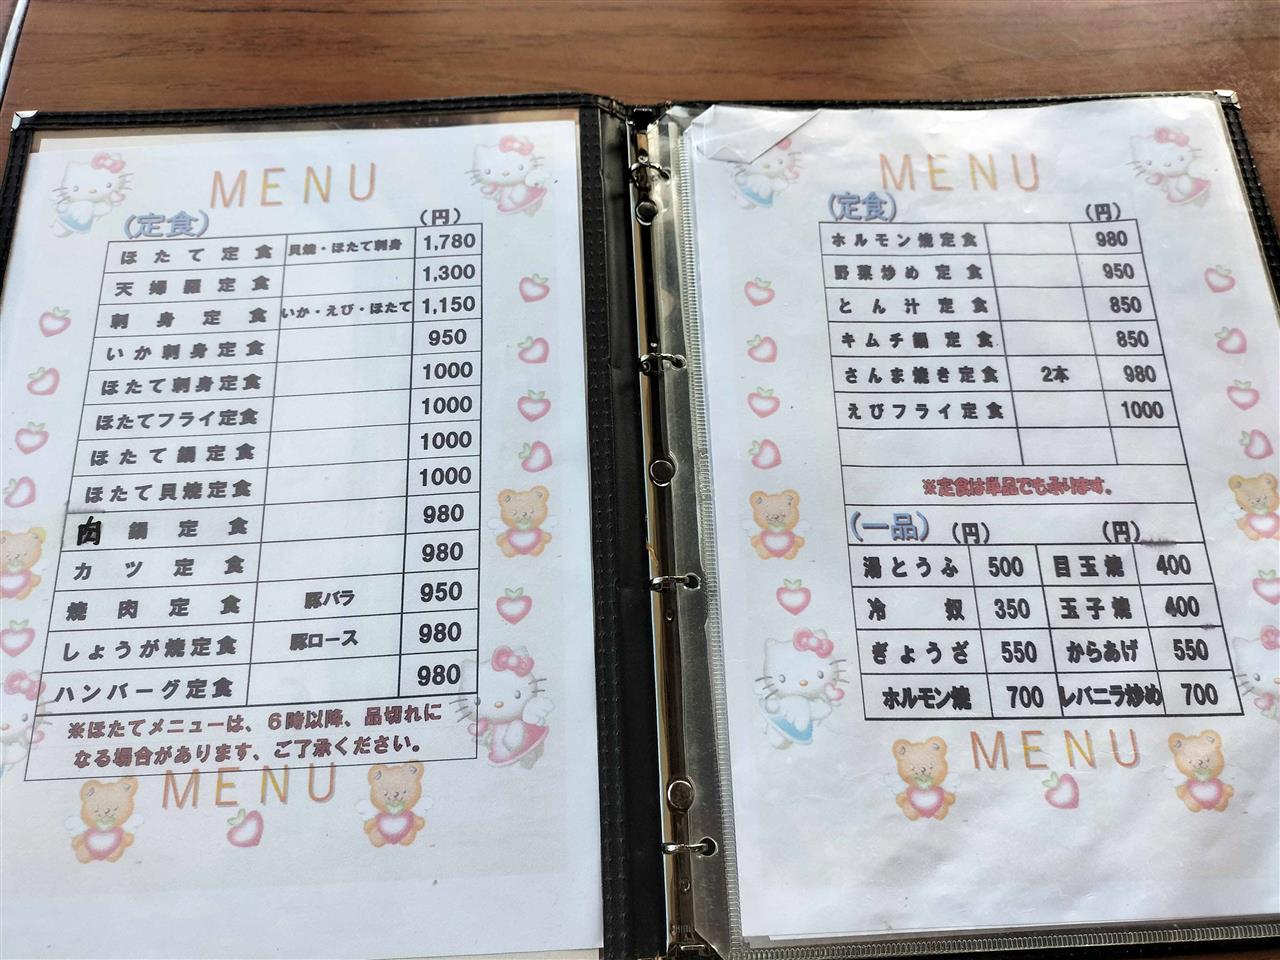 MENU
(定食) (円)
ほたて定食 貝焼・ほたて刺身 1,780
天婦羅定食 1,300
刺身定食 いか・えび・ほたて 1,150
いか刺身定食 950
ほたて刺身定食 1000
ほたてフライ定食 1000
ほたて鍋定食 1000
ほたて貝焼定食 1000
肉鍋定食 980
カツ定食 980
焼肉定食 豚バラ 950
しょうが焼定食 豚ロース 980
ハンバーグ定食 980
※ほたてメニューは、6時以降、品切れに
なる場合があります、ご了承ください。
MENU
MENU
(定食) (円)
ホルモン焼定食 980
野菜炒め定食 950
とん汁定食 850
キムチ鍋定食 850
さんま焼き定食 2本 980
えびフライ定食 1000
※定食は単品でも承ります。
(一品) (円) (円)
湯とうふ 500 目玉焼 400
冷奴 350 玉子焼 400
ぎょうざ 550 からあげ 550
ホルモン焼 700 レバニラ炒め 700
MENU